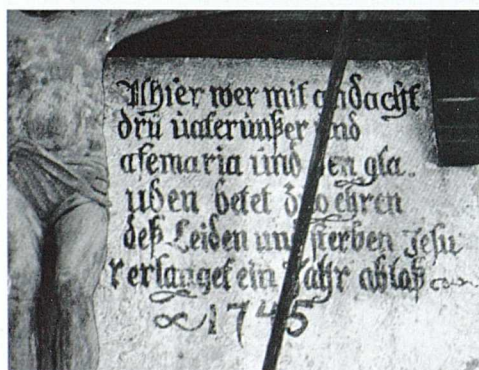 Alhier wer mit andacht
drü vaterunßer und
afemaria und den gla-
uben betet zuo ehren
deß Leiden und sterben Jesu
erlanget ein Jahr ablaß
1745